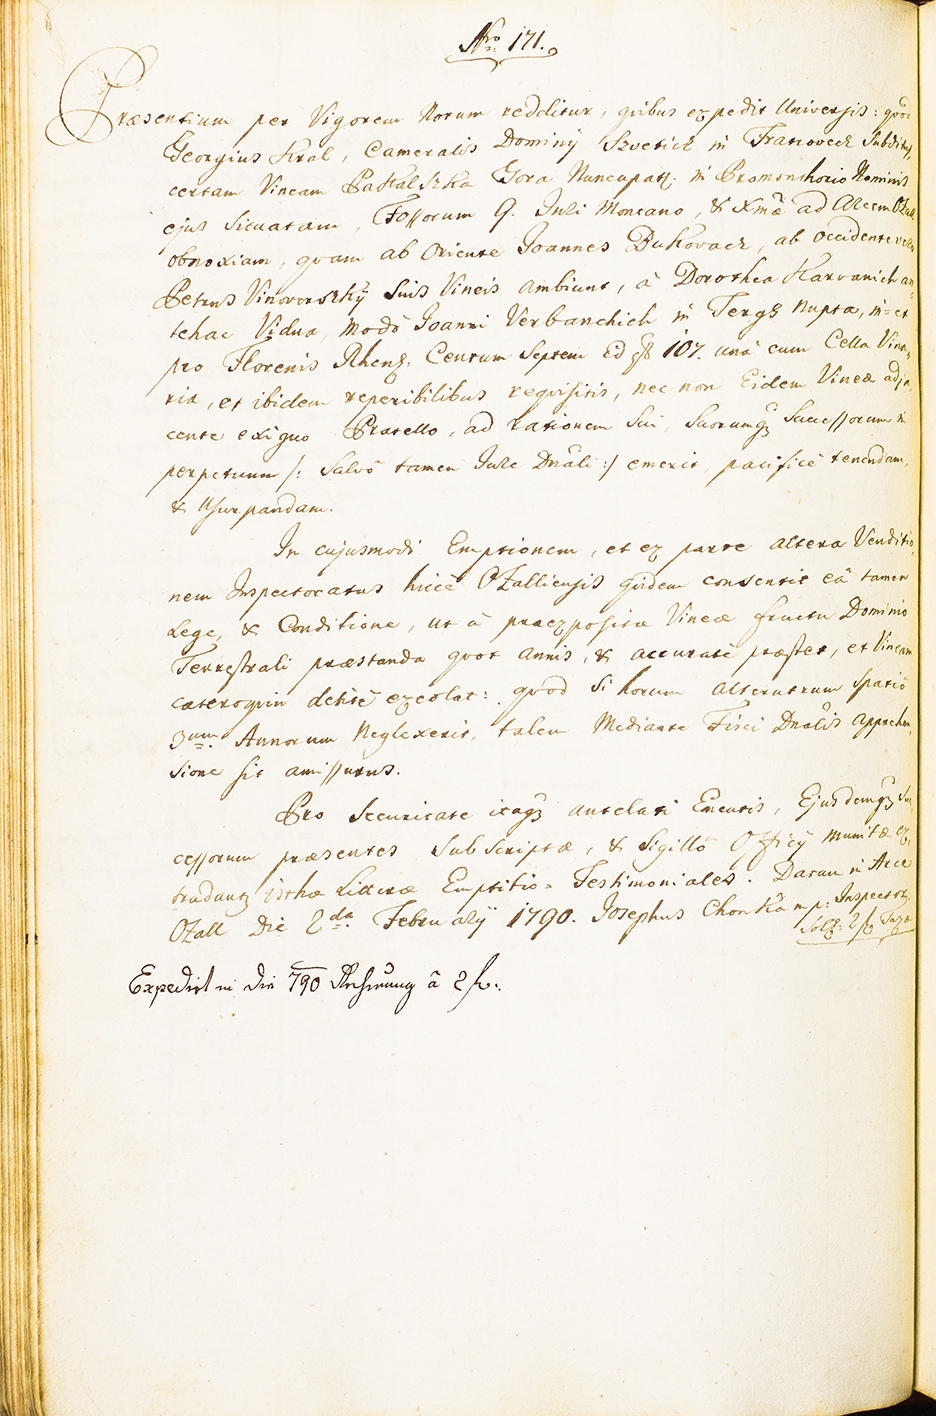 Nro 171.
Præsentium per Vigorem Notum redditur, quibus expedit Universis: quod
Georgius Kral, Cameralis Dominÿ Szvetich in Fratrovecz Subditus,
certam Vineam Paskalszka Gora Nuncupatã in Promonthorio Nominis
ejus Situatam, Fossorum 9. Juri Montano, & Xmæ ad Arcem Ozall
obnoxiam, quam ab Oriente Joannes Bukovacz, ab Occidente vero
Petrus Vinovorszkÿ Suis Vineis ambiunt, à Dorothea Karvanich an-
tehac Vidua, modò Joanni Verbanchich in Terg nupta, in- et
pro Florenis Rhen: Centum Septem id est 107. unà cum Cella Vina-
ria, et ibidem reperibilibus requisitis, nec non Eidem Vineæ adja-
cente exiguo Pratello, ad rationem Sui, Suorumq Successorum in
perpetuum /: Salvô tamen Jure Dnãli :/ emerit, pacificè tenendam,
& Usurpandam.
In cujusmodi Emptionem, et ex parte altera Venditio-
nem Inspectoratus hicce Ozalliensis quidem consentit eâ tamen
Lege, & Conditione, ut à præexpositæ Vineæ fructu Dominio
Terrestrali præstanda quot annis, & accuratè præstet, et Vineam
cæteroquin debitè excolat: quod Si horum alterutrum Spatiô
3um Annorum Neglexerit, talem Mediante Fisci Dnãlis apprehen-
sione sit amissurus.
Pro Securitate itaq antelati Emptoris, Ejusdemq Suc-
cessorum præsentes Subscriptæ, & Sigillô Officÿ munitæ ex-
tradantur isthæ Litteræ Emptitio-Testimoniales. Datum in Arce
Ozall Die 2da Februarÿ 1790. Josephus Chonka mp: Inspector
Solv: 2 fl Taxæ
Expedirt in die 790 Rechnung à 2 fl.